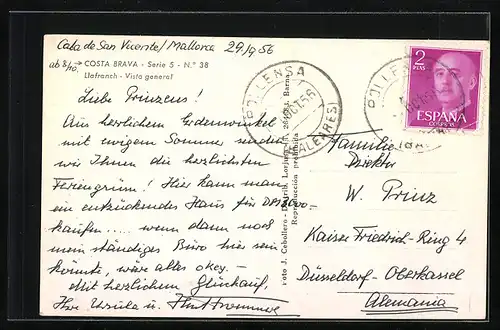 Cala de San Vicente/Mallorca 29/9 56
ab 8/10. →
COSTA BRAVA - Serie 5 - N.º 38
Llafranch - Vista general
Liebe Prinzens!
Aus herrlichem Erdenwinkel
mit ewigem Sommer senden
wir Ihnen die herzlichsten
Feriengrüße! Hier kann man
ein entzückendes Haus für
kaufen.... wenn dann noch
mein ständiges Büro hier sein
könnte, wäre alles okey. -
Mit herzlichem Glückauf,
Ihre Ursula u.
Foto J. Cebollero - Distrib.
Reproducción prohibida
POLLENSA
OCT 56
(BALEARES)
POLLENSA
2
PTAS
ESPAÑA
CORREOS
Familie
W. Prinz
Kaiser Friedrich-Ring 4
Düsseldorf-Oberkassel
Alemania